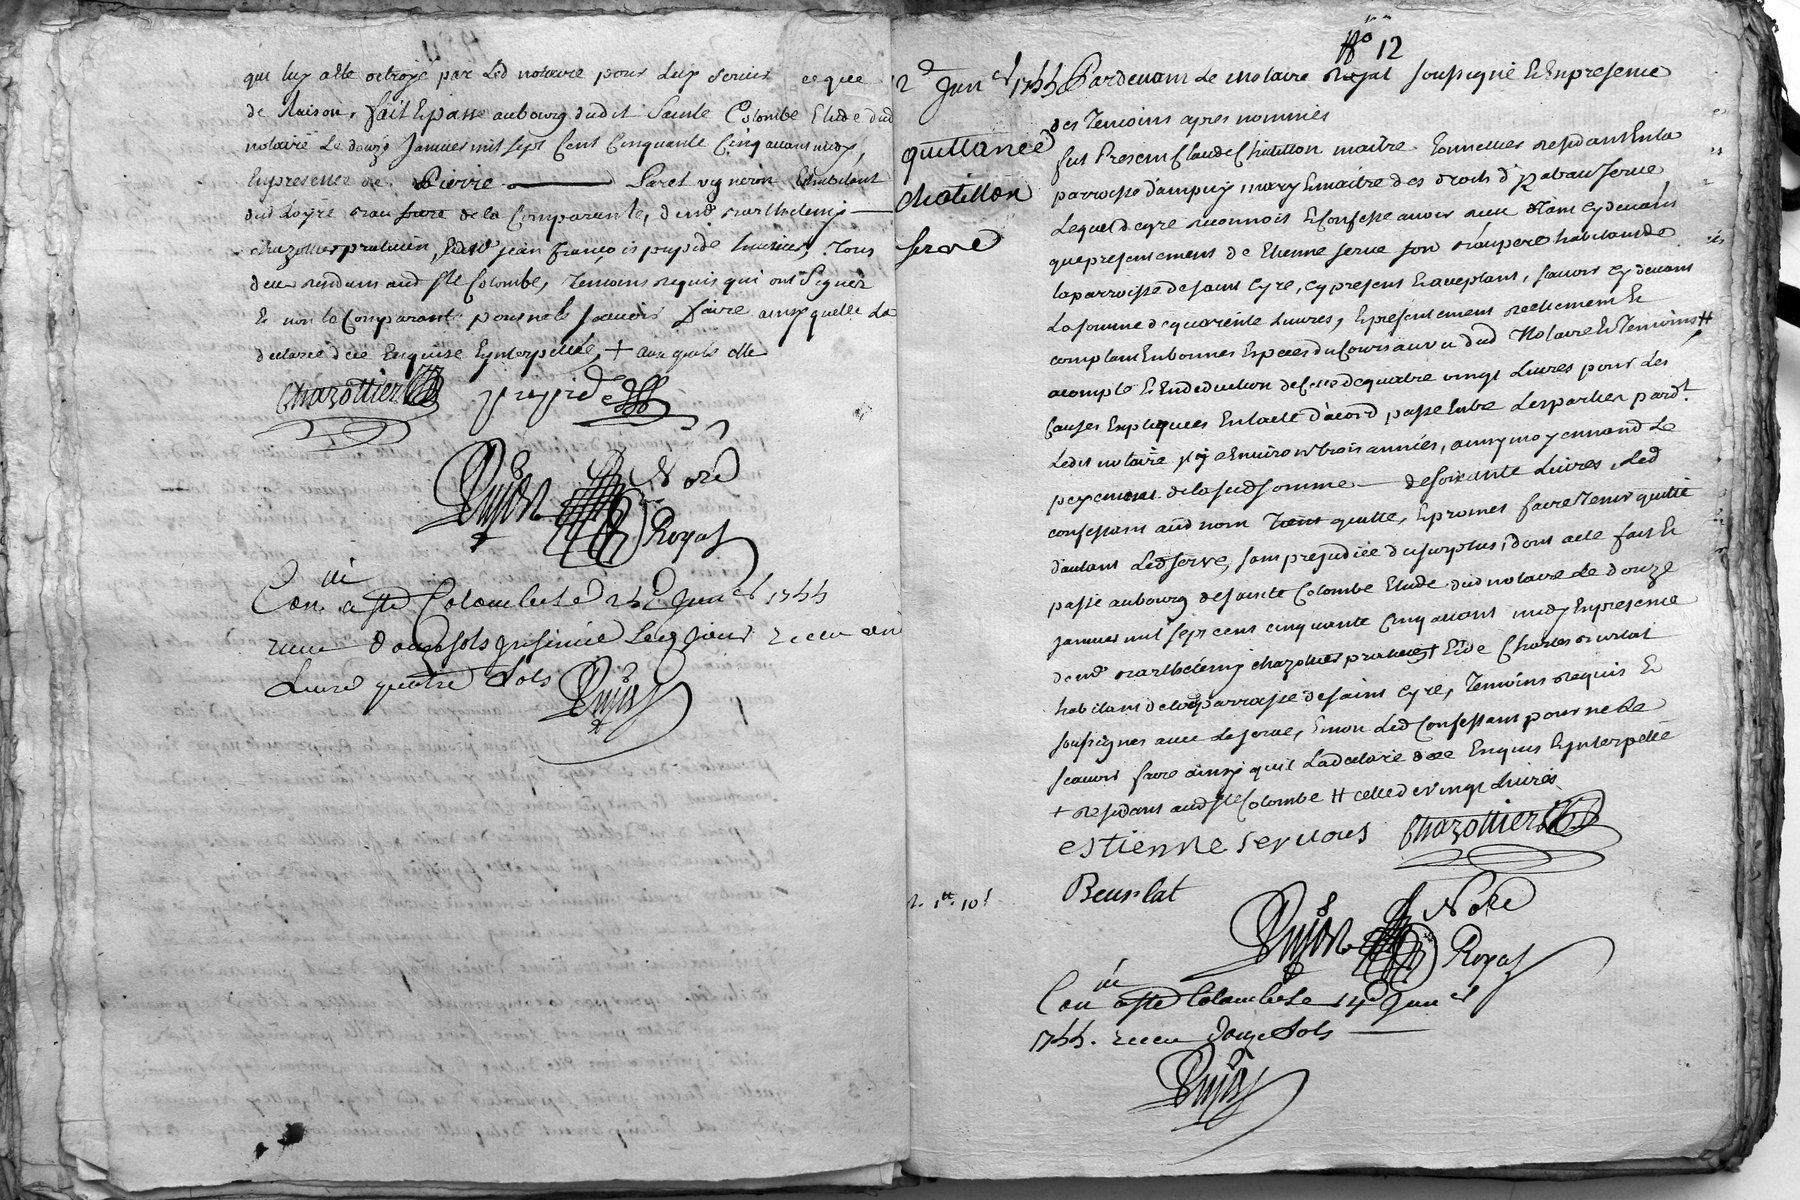 qui luy a esté octroyé par led notaire pour luy servir ce que
de Raison, fait & passé au bourg dudit Sainte Colombe Etude dud
notaire Le douzé Janvier mil sept Cent Cinquante Cinq avant midy,
En presence de Pierre Paret vigneron & habitant
dud Loyre beau frere de la Comparante, de mre Barthelemy
chazottier praticien, & de Sr jean françois pupide huissier, Tous
deux residans aud Ste Colombe, Temoins requis qui ont Signez
& non la Comparante pour ne le scavoir faire ainsy quelle La
declaré de ce Enquise & interpellée, + aux quels elle
Chazottier
Pujol No re
Royal
Con lé a Ste Colombe Le 24e Janer 1755
receu douze sols Insinué Led jour receu un
Livre quatre Sols
Pujol
No 12
12e Janer 1755
quittance
Chatillon
Serve
Pardevant Le Notaire Royal soussigné & En presence
des Temoins apres nommés
fut Present Claude Chatillon maitre Tonnellier residant En la
parroisse d'ampuy mary & maitre des droits d' Serve
Lequel de gré reconnoit & Confesse avoir receu tant cy devant
que presentement de Etienne Serve son beaupere habitant de
la parroisse de saint Cyre, cy present & acceptant, scavoir cy devant
La somme de quarante Livres, & presentement réellement &
comptant En bonnes Especes du Cours au vu dud Notaire & Temoins #
a compte & En deduction de Celle de quatre vingt Livres pour Les
Causes Expliquées En l'acte d'acord passé Entre Les parties pardt
Ledit notaire il y a Environ trois années, au moyennand Le
payement de la sud somme de soixante Livres, Led
confessant aud nom Tient quitte, & promet faire Tenir quitte
d'autant Led Serve, sans prejudice du surplus, dont acte fait &
passé au bourg de Sainte Colombe Etude dud notaire Le douze
Janvier mil sept cent cinquante Cinq avant midy En presence
de mre Barthelemy chazottier praticien + & de Charles Beurlat
habitant de lad parroisse de saint Cyre, Temoins Requis &
soussignes avec Le Serve, & non Led Confessant pour ne Le
scavoir faire ainsy quil La declaré de ce Enquis & interpellé
+ residant aud Ste Colombe # celle de vingt Livres
estienne servous Chazottier
Beurlat
1 tt. 10 s
Pujol No re
Royal
Con lé a Ste Colombe Le 14e Janer
1755. receu douze Sols
Pujol